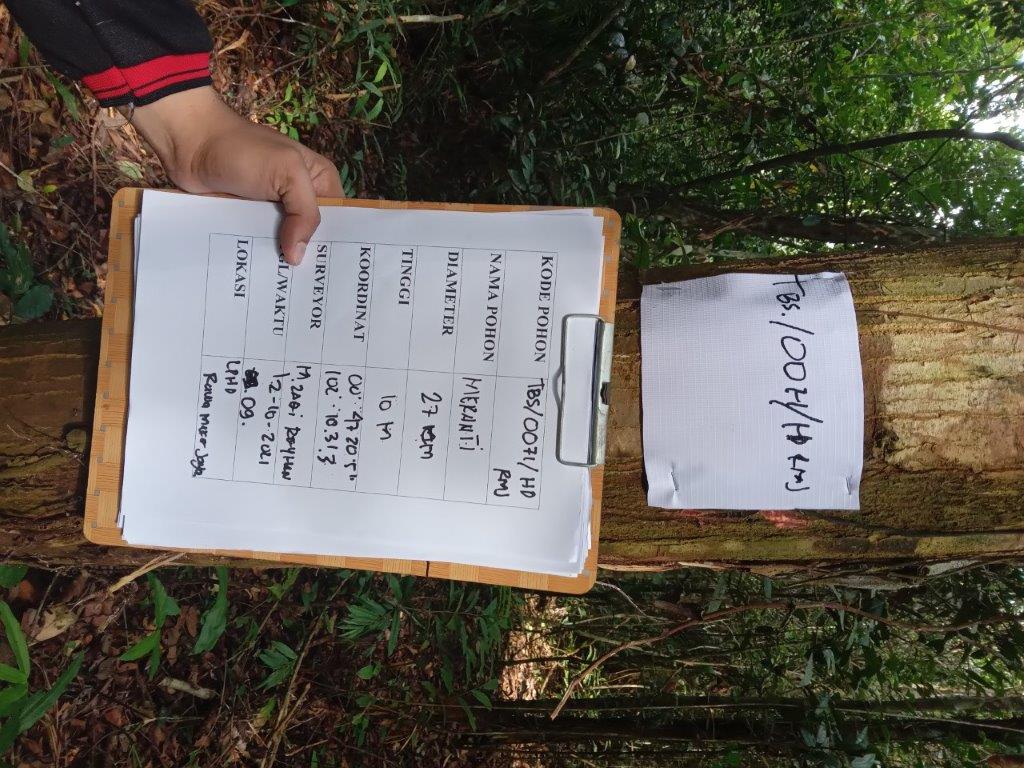 TBS./0071/HD RMJ
KODE POHON TBS/0071/HD
RMJ
NAMA POHON MERANTI
DIAMETER 27
TINGGI 10 M
KOORDINAT 00° 47 20.5"
102° 10.313
SURVEYOR M. ZAQI REYHAN
GL/WAKTU 12-10-2021
09.
LOKASI LPHD
Rawa Mekar Jaya